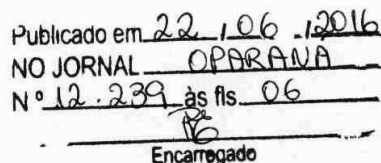 Publicado em 22 / 06 / 2016
NO JORNAL OPARANA
Nº 12.239 às fls. 06
Encarregado